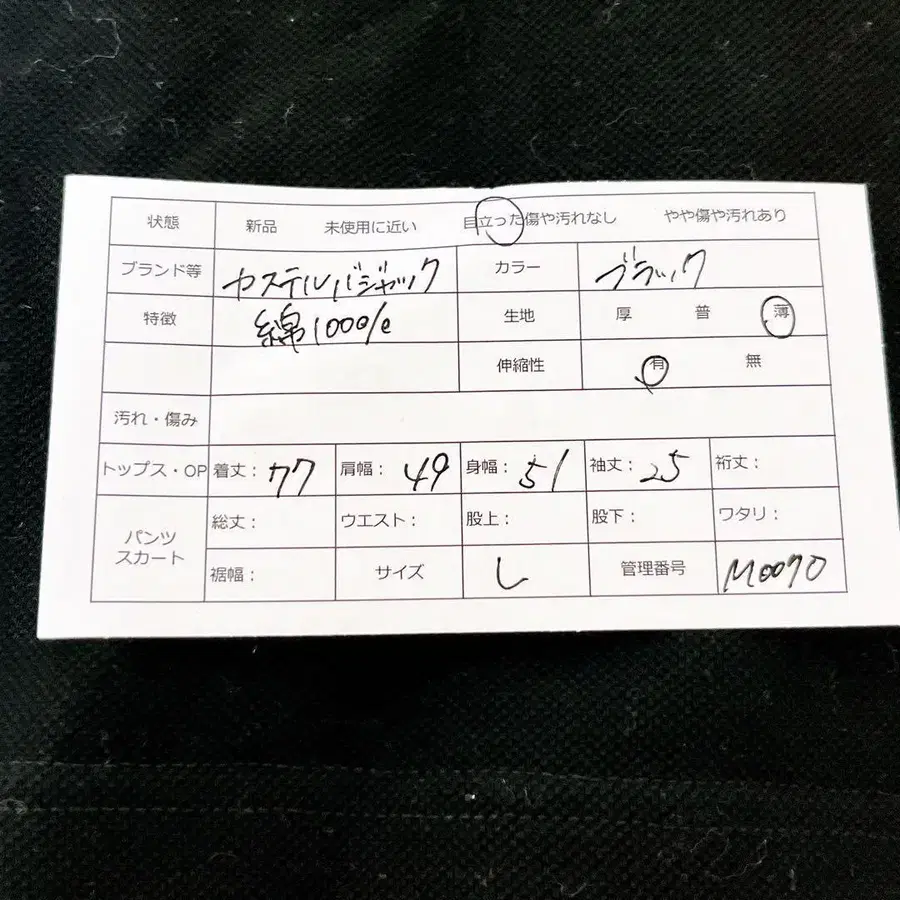 状態 新品 未使用に近い 目立った傷や汚れなし やや傷や汚れあり
ブランド等 カステルバジャック カラー ブラック
特徴 綿100% 生地 厚 普 薄
伸縮性 有 無
汚れ・傷み
トップス・OP 着丈: 77 肩幅: 49 身幅: 51 袖丈: 25 裄丈:
パンツ スカート 総丈: ウエスト: 股上: 股下: ワタリ:
裾幅: サイズ L 管理番号 M0070